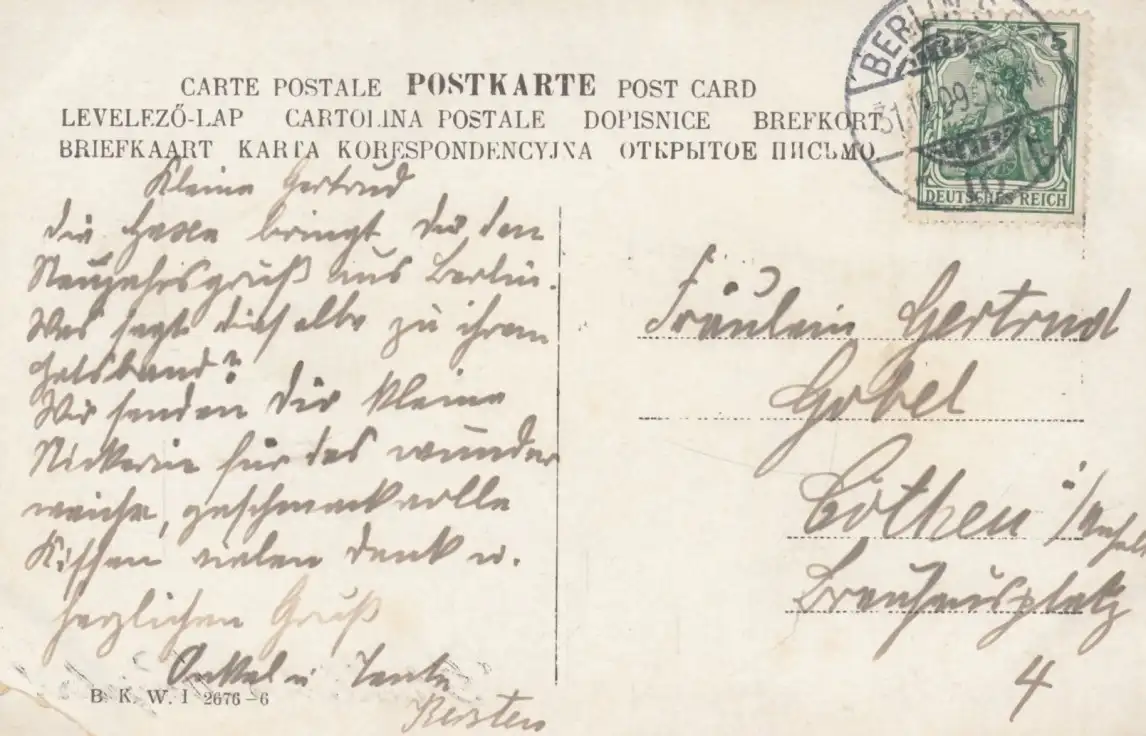 CARTE POSTALE POSTKARTE POST CARD
LEVELEZŐ-LAP CARTOLINA POSTALE DOPISNICE BREFKORT
BRIEFKAART KARTA KORESPONDENCYJNA ОТКРЫТОЕ ПИСЬМО
BERLIN S
31.12.09
5
DEUTSCHES REICH
Kleine Gertrud
die Hexe bringt dir den
Neujahrsgruß aus Berlin.
Was sagt dieselbe zu ihrem
Halsband?
Wir senden dir kleine
für das wunder
weiche, geschmackvolle
Kissen vielen Dank u.
herzlichen Gruß
Onkel u Tante
Kersten
B. K. W. I 2676-6
Fräulein Gertrud
Gobel
Cöthen i/Anhalt
Brauhausplatz
4